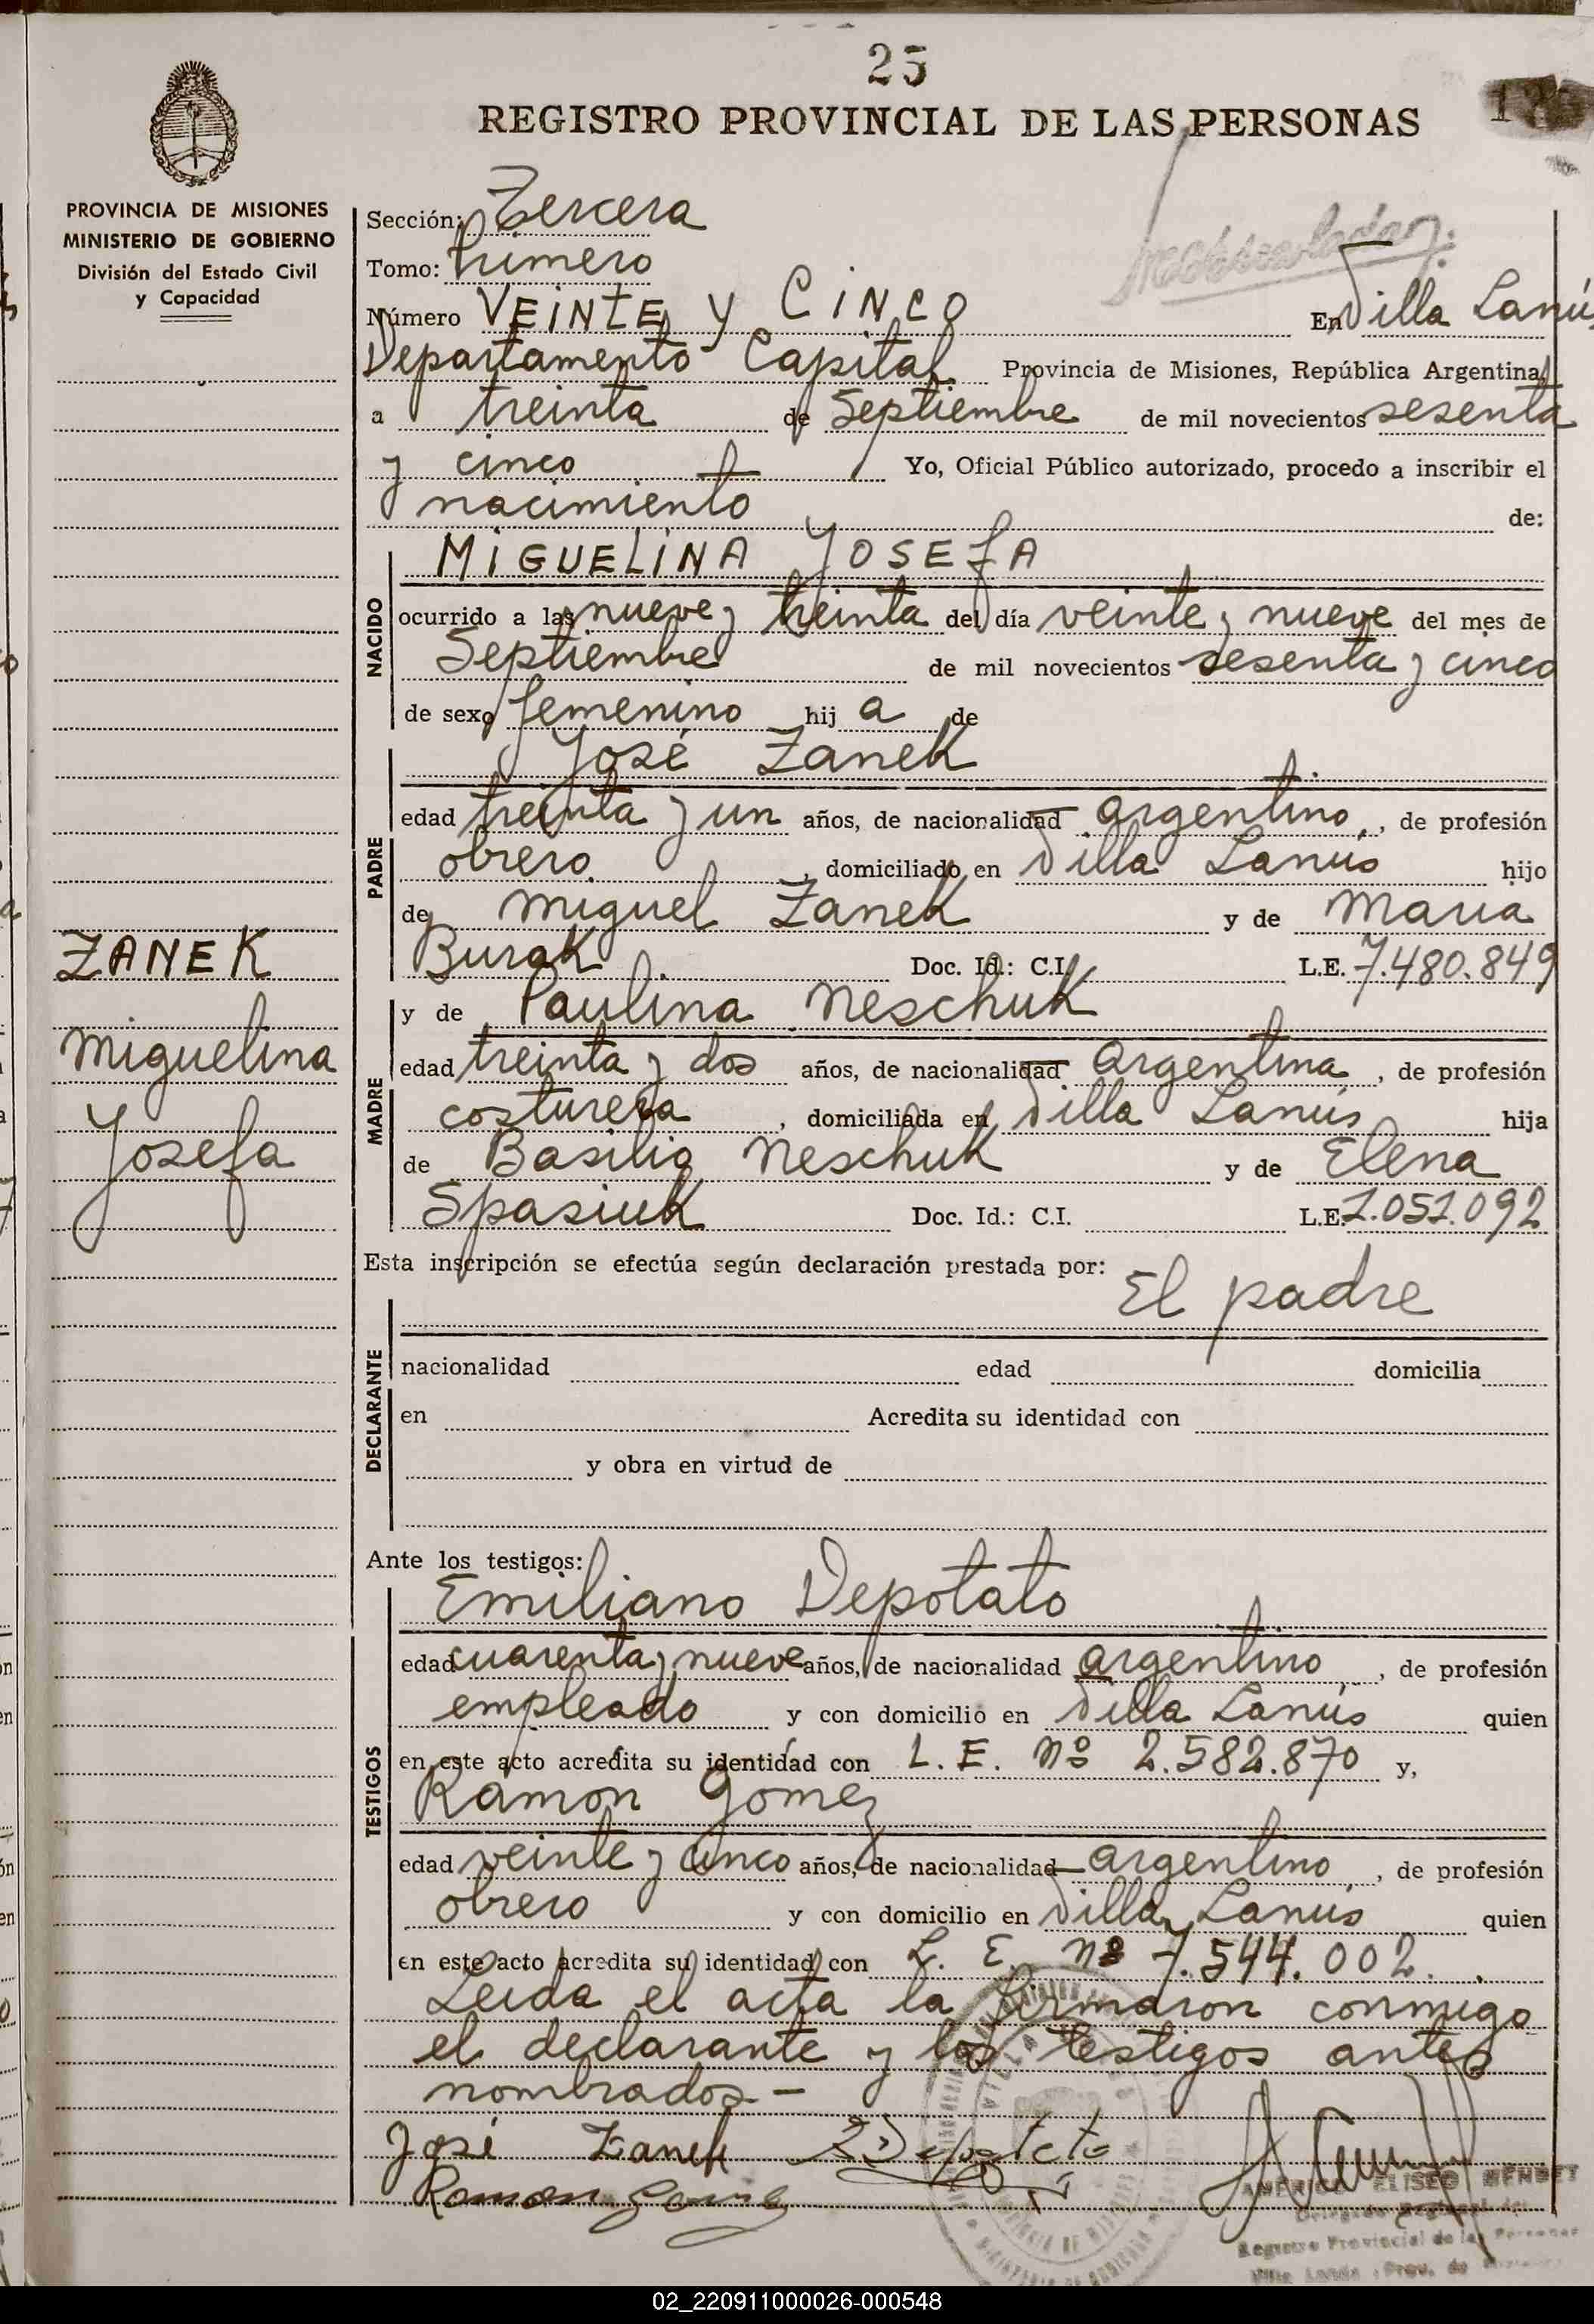 25
REGISTRO PROVINCIAL DE LAS PERSONAS
PROVINCIA DE MISIONES
MINISTERIO DE GOBIERNO
División del Estado Civil
y Capacidad
Sección: Tercera
Tomo: Primero
Número VEINTE y CINCO En Villa Lanús
Departamento Capital Provincia de Misiones, República Argentina,
a treinta de Septiembre de mil novecientos sesenta
y cinco Yo, Oficial Público autorizado, procedo a inscribir el
nacimiento de:
NACIDO
MIGUELINA YOSEFA
ocurrido a las nueve y treinta del día veinte y nueve del mes de
Septiembre de mil novecientos sesenta y cinco
de sexo femenino hij a de
José Zanek
PADRE
edad treinta y un años, de nacionalidad argentino, de profesión
obrero, domiciliado en Villa Lanús hijo
de Miguel Zanek y de Maria
Burak Doc. Id.: C.I. L.E. 7.480.849
y de Paulina Neschuk
MADRE
edad treinta y dos años, de nacionalidad Argentina, de profesión
costurera, domiciliada en Villa Lanús hija
de Basilio Neschuk y de Elena
Spasiuk Doc. Id.: C.I. L.E. 1.051.092
ZANEK
Miguelina
Yosefa
Esta inscripción se efectúa según declaración prestada por:
El padre
DECLARANTE
nacionalidad edad domicilia
en Acredita su identidad con
y obra en virtud de
Ante los testigos:
Emiliano Depotato
TESTIGOS
edad cuarenta y nueve años, de nacionalidad argentino, de profesión
empleado y con domicilio en Villa Lanús quien
en este acto acredita su identidad con L. E. Nº 2.582.870 y,
Ramon Gomez
edad veinte y cinco años, de nacionalidad argentino, de profesión
obrero y con domicilio en Villa Lanús quien
en este acto acredita su identidad con L. E. Nº 7.544.002.
Leida el acta la firmaron conmigo
el declarante y los testigos antes
nombrados -
José Zanek
Ramon
ELISEO
Registro Provincial de las Personas
02_220911000026-000548